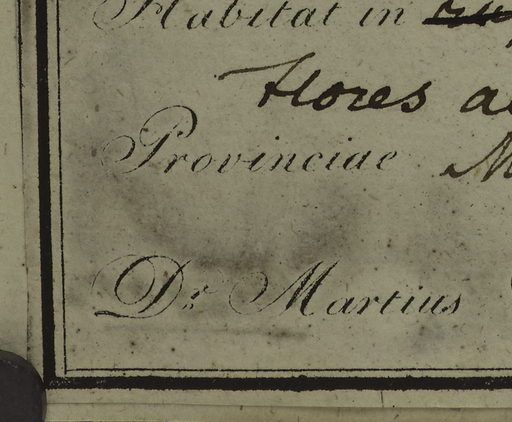 Habitat in
Flores
Provinciae
Dr. Martius